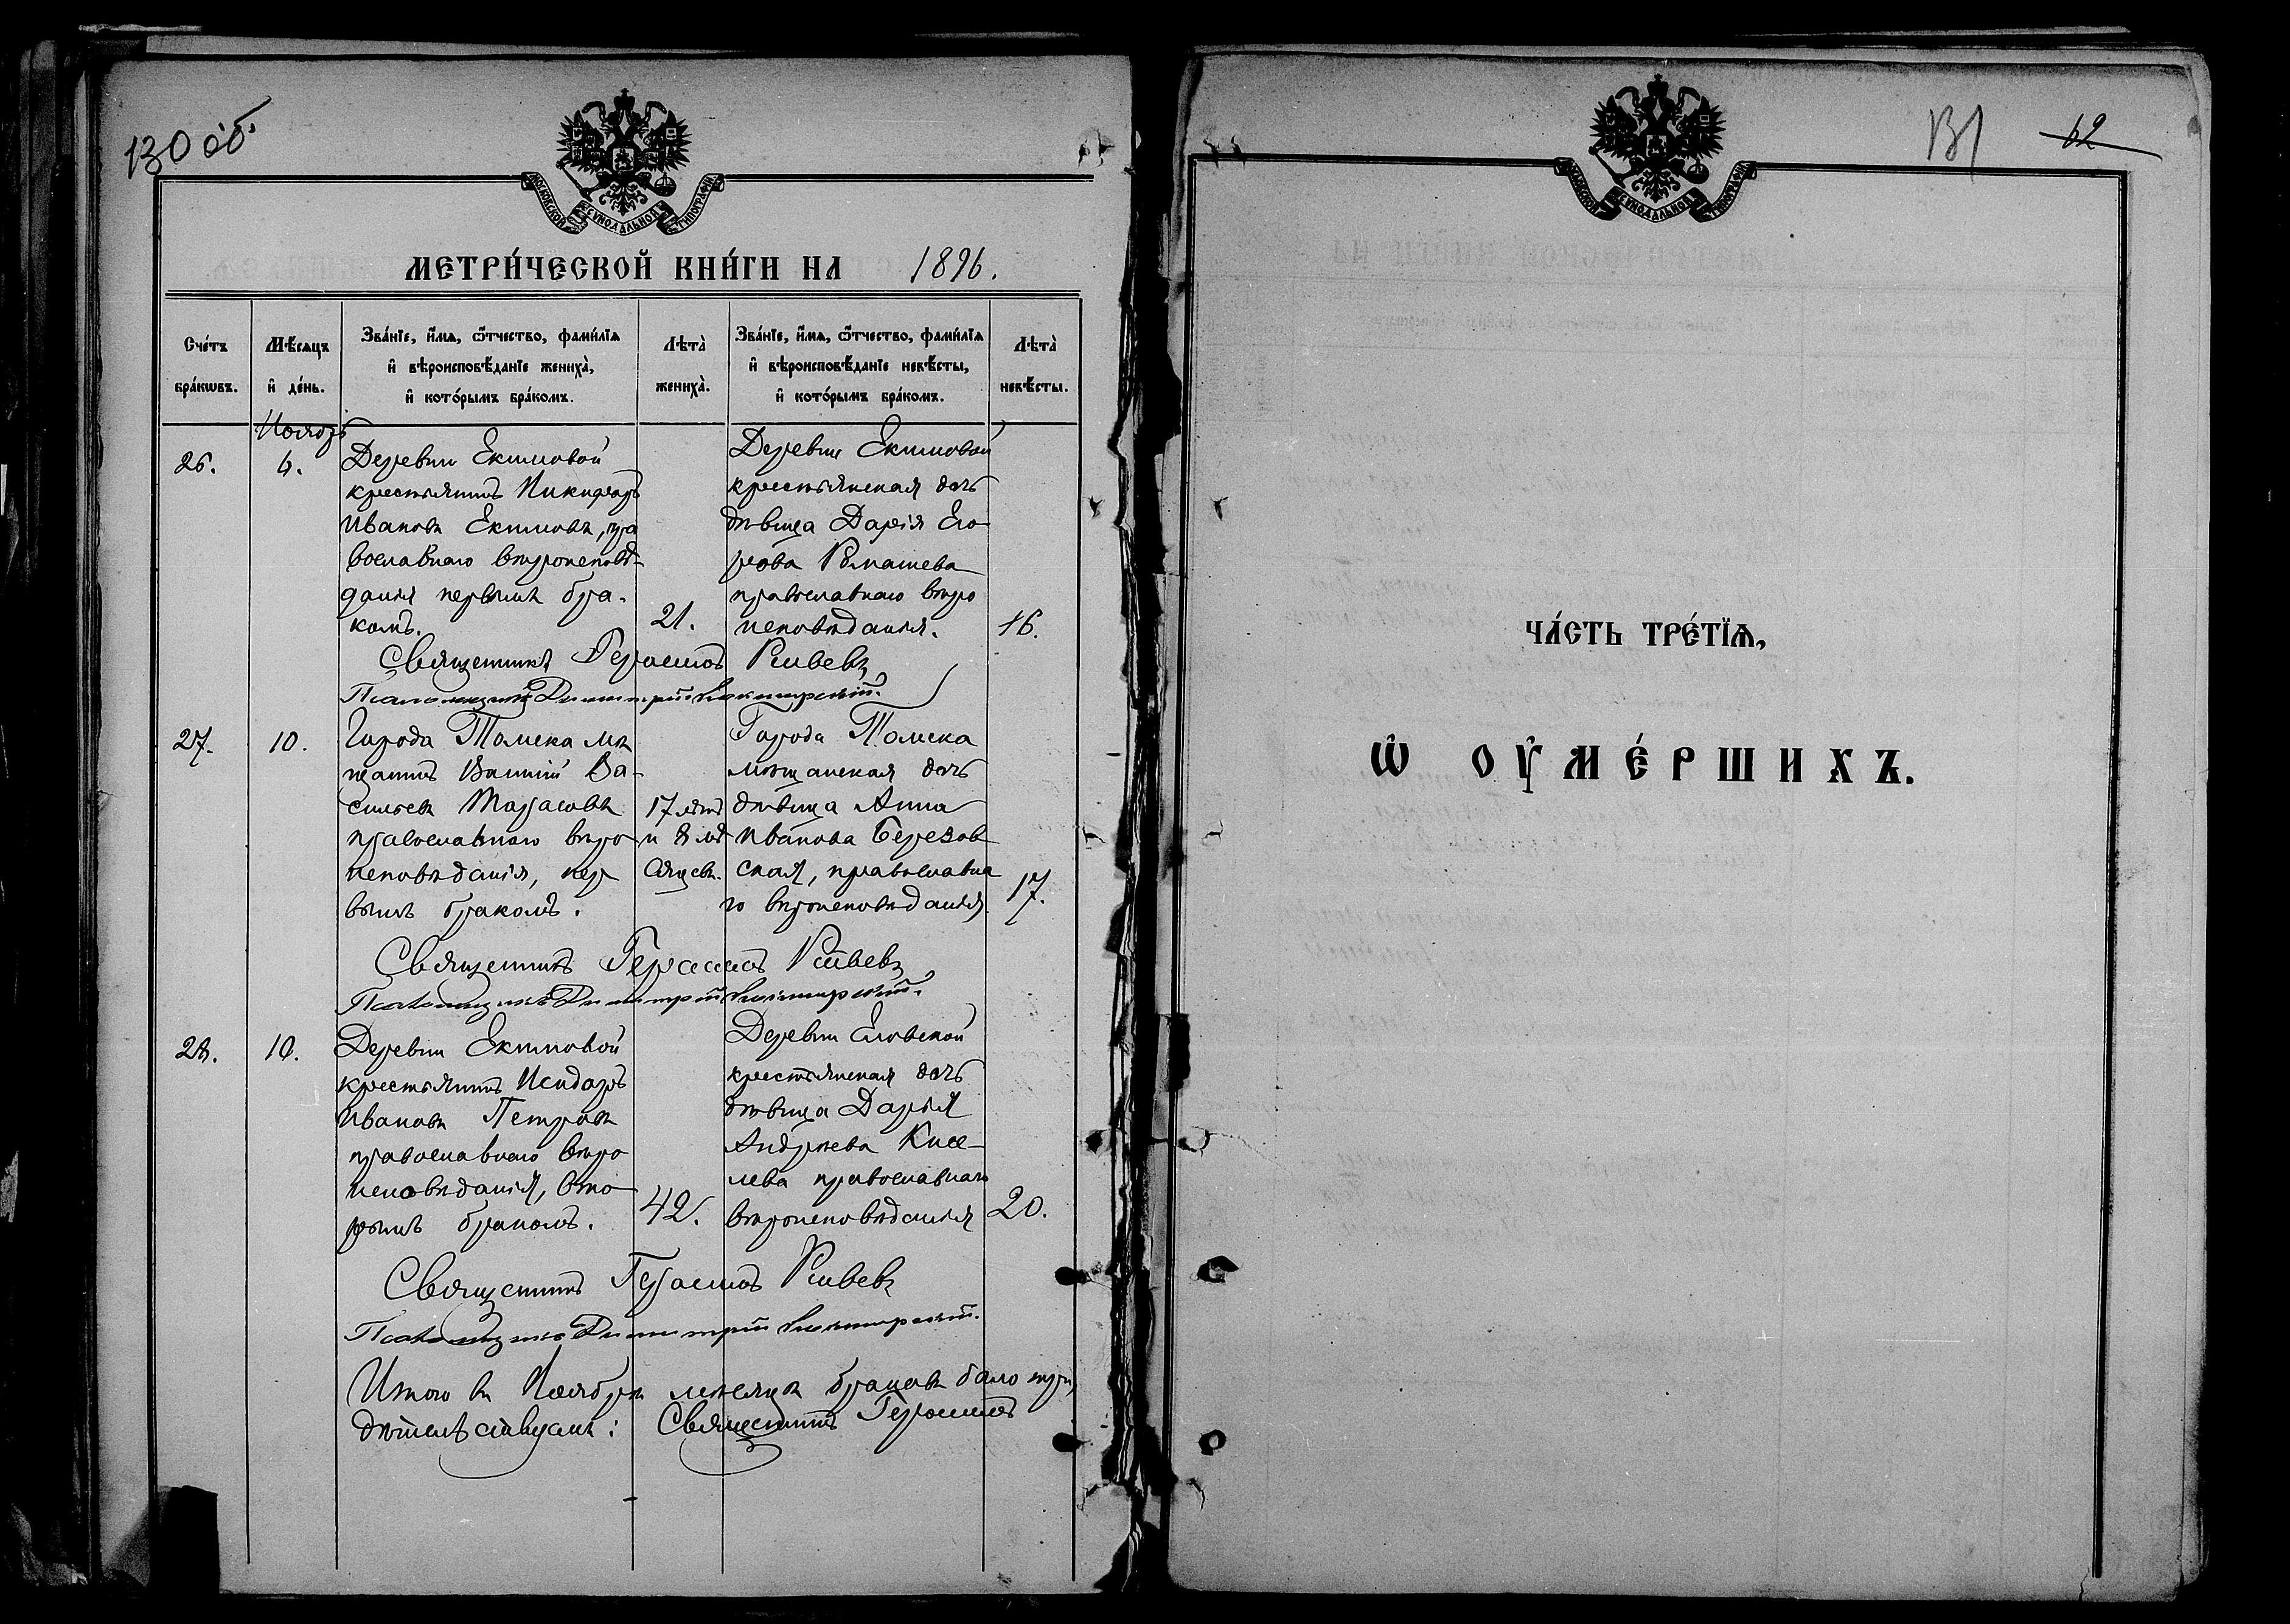 130 об
МОСКОВСКОЙ СѴНОДАЛЬНОЙ ТИПОГРАФІИ
МЕТРИ́ЧЕСКОЙ КНИ́ГИ НА 1896.
Сче́тъ бра́кѡвъ.
Мѣ́сяцъ и҆ де́нь.
Зва́нїе, и҆́мѧ, ѻ҆́тчество, фами́лїѧ и҆ вѣроисповѣ́данїе жениха̀, и҆ кото́рымъ бра́комъ.
Лѣта̀ жениха̀.
Зва́нїе, и҆́мѧ, ѻ҆́тчество, фами́лїѧ и҆ вѣроисповѣ́данїе невѣ́сты, и҆ кото́рымъ бра́комъ.
Лѣта̀ невѣ́сты.
Ноябрь
26.
6.
Деревни Екимовой
крестьянинъ Никифоръ
Ивановъ Екимовъ, пра
вославнаго вѣроисповѣ-
данія первымъ бра-
комъ.
21.
Деревни Екимовой
крестьянская дочь
дѣвица Дарія Его
рова
православнаго вѣро
исповѣданія.
16.
Священникъ Герасимъ
Псаломщикъ Димитрій
27.
10.
Города Томска мѣ
щанинъ Ва-
сильевъ Тарасовъ
православнаго вѣро
исповѣданія, пер
вымъ бракомъ.
17 лѣтъ
и 8 мѣ
сяцевъ.
Города Томска
мѣщанская дочь
дѣвица Анна
Иванова Березов
ская, православна
го вѣроисповѣданія
17.
Священникъ Герасимъ
Псаломщикъ Димитрій
28.
10.
Деревни Екимовой
крестьянинъ Исидоръ
Ивановъ Петровъ
православнаго вѣро
исповѣданія, вто
рымъ бракомъ.
42.
Деревни Еловской
крестьянская дочь
дѣвица Дарія
Андреева Кисе-
лева православнаго
вѣроисповѣданія
20.
Священникъ Герасимъ
Псаломщикъ Димитрій
Итого въ Ноябрѣ мѣсяцѣ браковъ было три,
Священникъ Герасимъ
МОСКОВСКОЙ СѴНОДАЛЬНОЙ ТИПОГРАФІИ
131 62
ЧА́СТЬ ТРЕ́ТЇѦ,
Ѡ҆ ОУ҆МЕ́РШИХЪ.